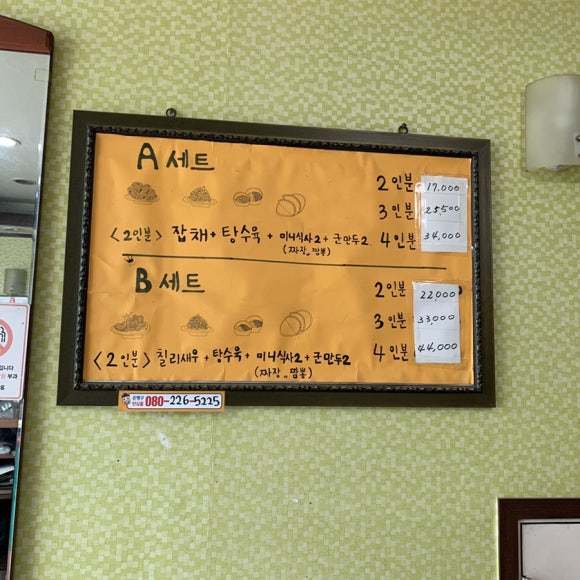 A 세트
2인분 17,000
3인분 25,500
<2인분> 잡채 + 탕수육 + 미니식사2 + 군만두2 4인분 34,000
(짜장 or 짬뽕)
B 세트
2인분 22,000
3인분 33,000
<2인분> 칠리새우 + 탕수육 + 미니식사2 + 군만두2 4인분 44,000
(짜장 or 짬뽕)
은평구
안심콜 080-226-5225